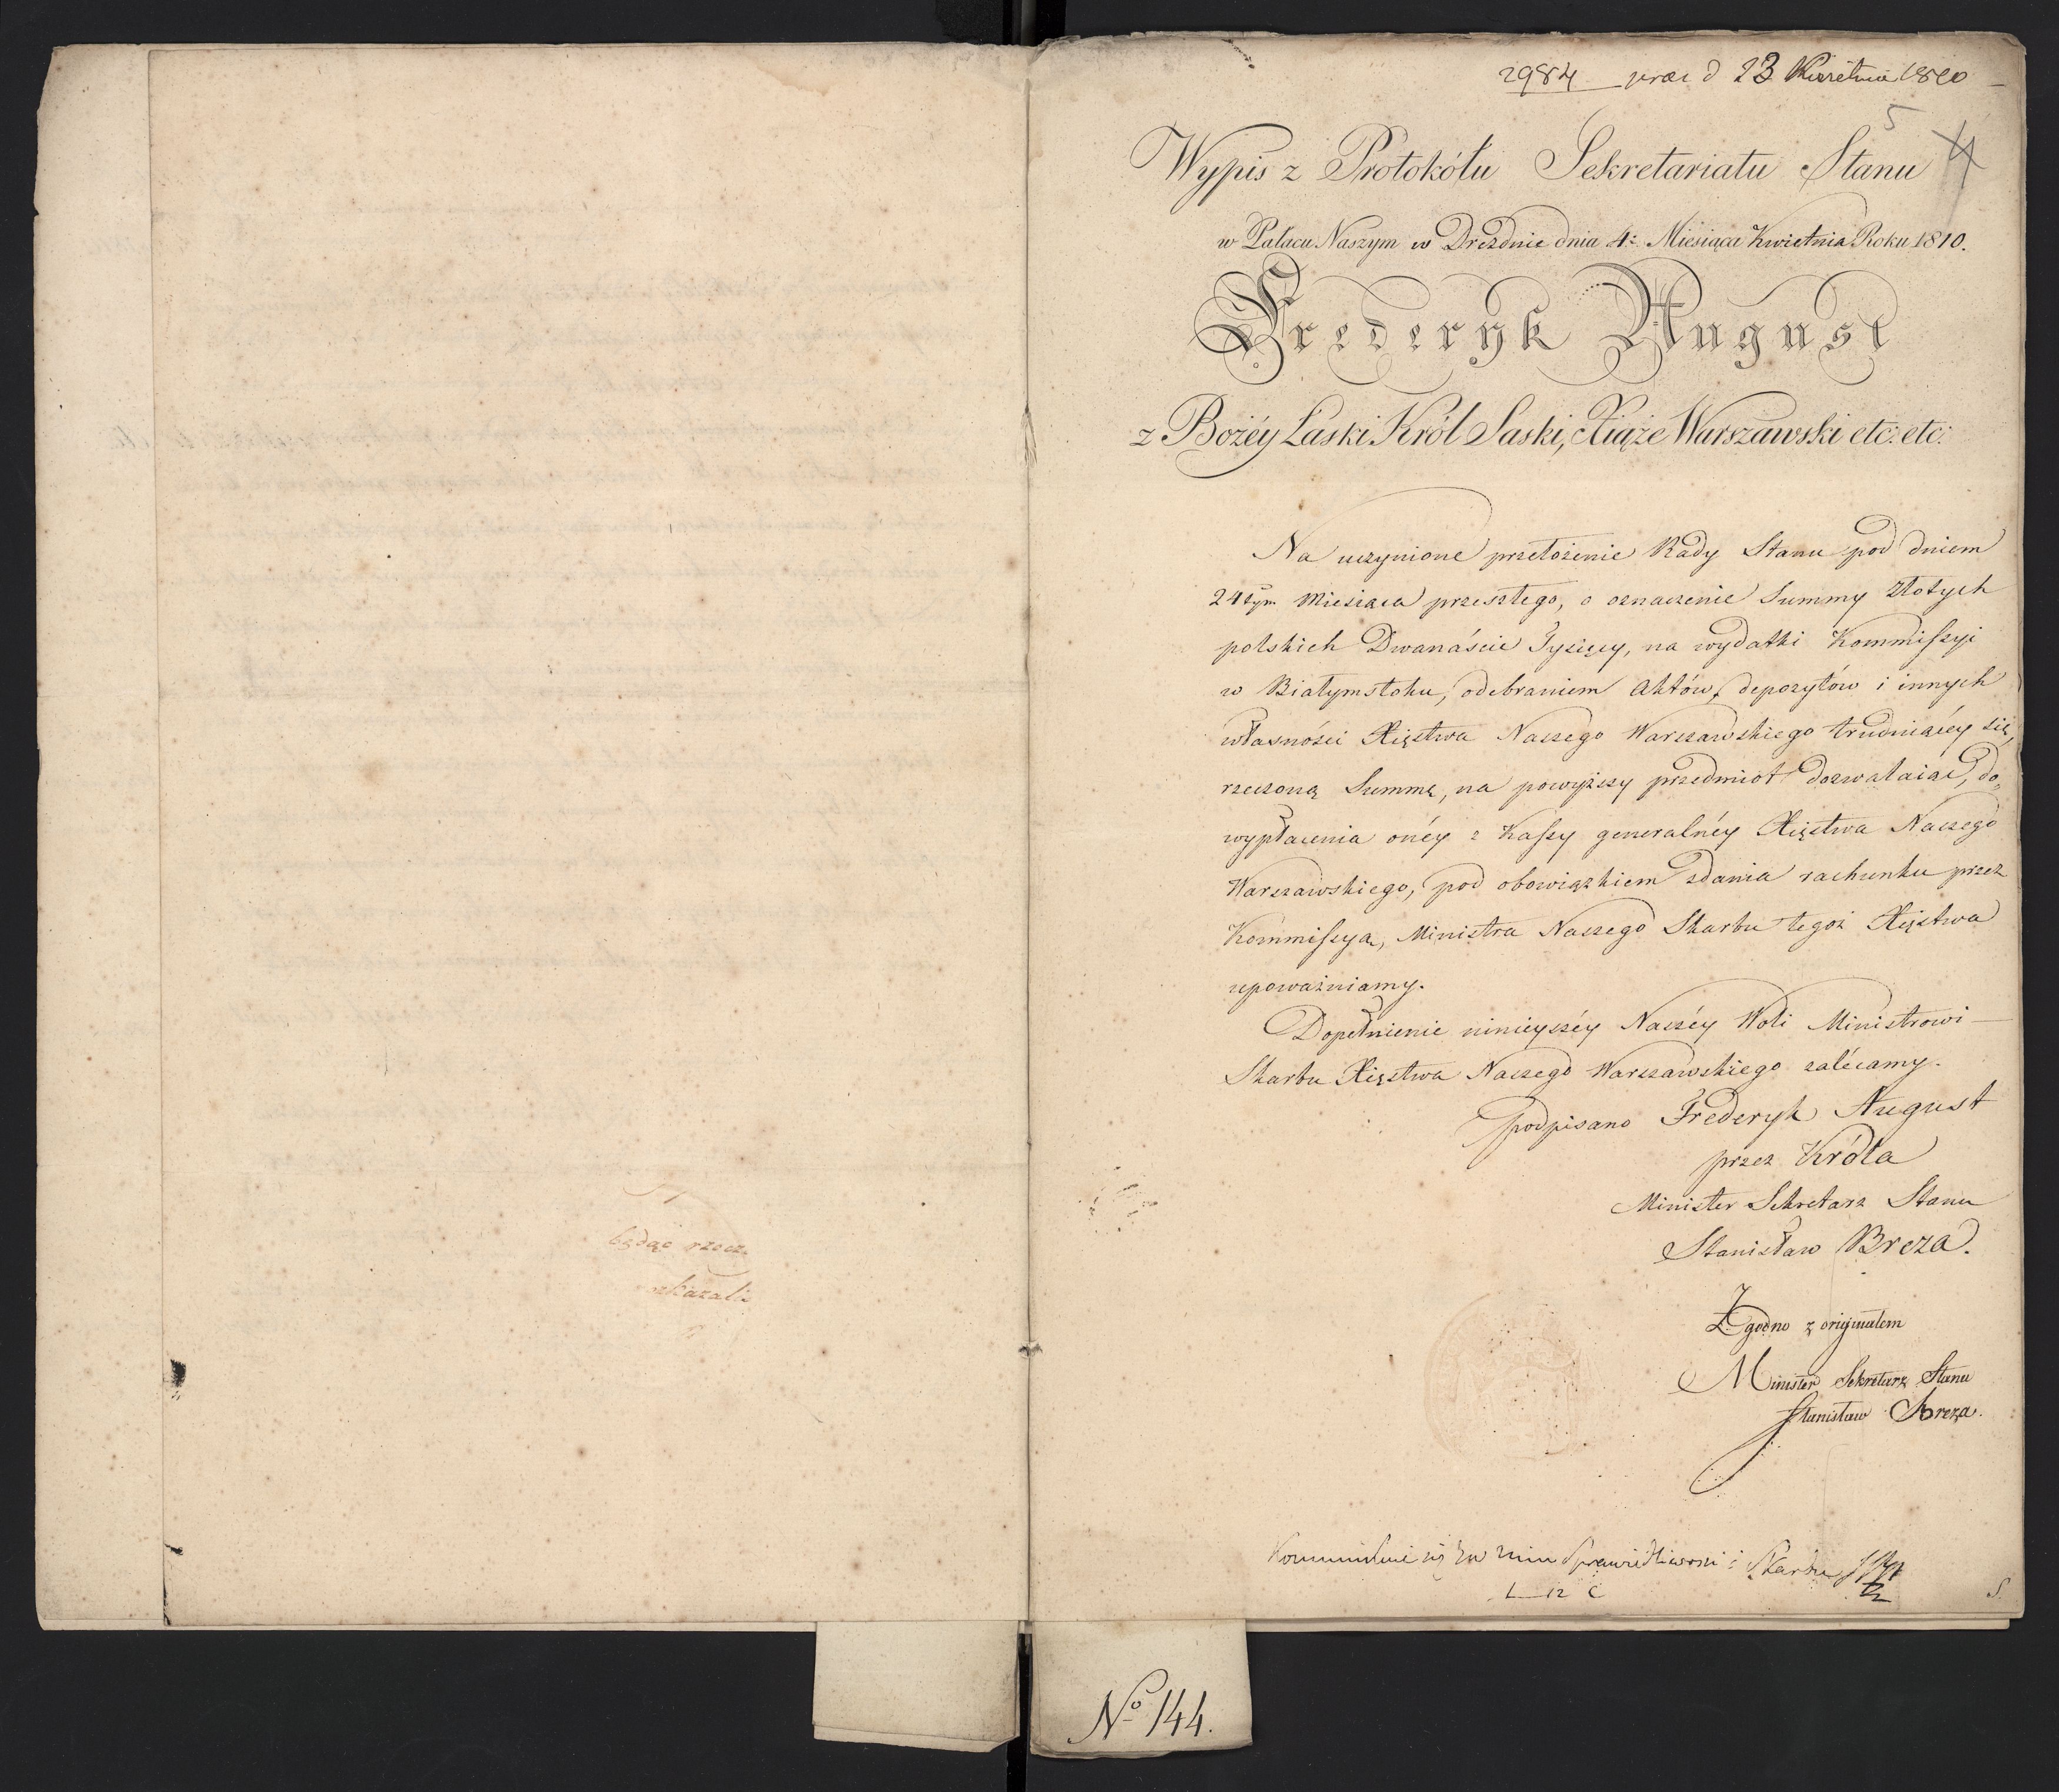 będąc rzecz
2984 prae d 23 Kwietnia 1810
5 4
Wypis z Protokółu Sekretariatu Stanu
w Pałacu Naszym w Dreźdnie dnia 4: Miesiąca Kwietnia Roku 1810.
Frederyk August
z Bożéy Łaski Król Saski, Xiąże Warszawski etc: etc:
Na uczynione przełożenie Rady Stanu pod dniem
24tym Miesiąca przeszłego, o oznaczenie Summy Złotych
polskich Dwanaście Tysięcy, na wydatki Kommissyi
w Białymstoku, odebraniem Aktów, depozytów i innych
własności Xięstwa Naszego Warszawskiego trudniącéy się,
rzeczoną Summę, na powyższy przedmiot dozwalaiąc, do
wypłacenia onéy z Kassy generalnéy Xięstwa Naszego
Warszawskiego, pod obowiązkiem zdania rachunku przez
Kommissyą, Ministra Naszego Skarbu tegoż Xięstwa
upoważniamy.
Dopełnienie ninieyszéy Naszéy Woli Ministrowi
Skarbu Xięstwa Naszego Warszawskiego zalécamy.
podpisano Frederyk August
przez Króla
Minister Sekretarz Stanu
Stanisław Breza.
Zgodno z oryginałem
Minister Sekretarz Stanu
Stanisław Breza.
Sprawiedliwości i Skarbu
No 144.